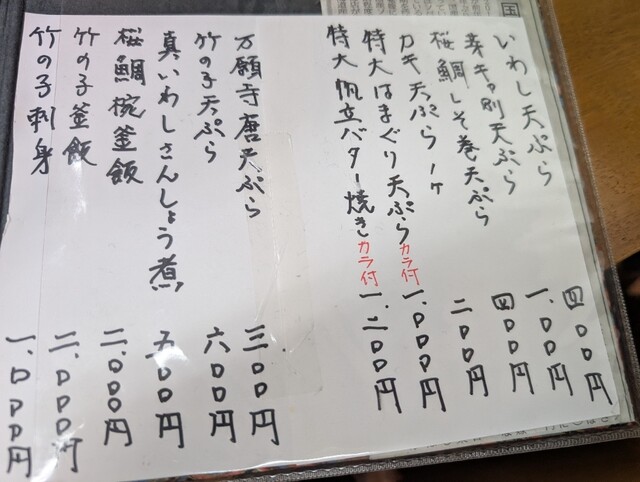 いわし天ぷら 四〇〇円
芽キャ別天ぷら 一、〇〇〇円
桜鯛しそ巻天ぷら 四〇〇円
カキ天ぷら1ヶ 二〇〇円
特大はまぐり天ぷらカラ付 一、〇〇〇円
特大帆立バター焼きカラ付 一、二〇〇円
万願寺唐天ぷら 三〇〇円
竹の子天ぷら 六〇〇円
真いわしさんしょう煮 五〇〇円
桜鯛椀釜飯 二、〇〇〇円
竹の子釜飯 二、〇〇〇円
竹の子刺身 一、〇〇〇円
国